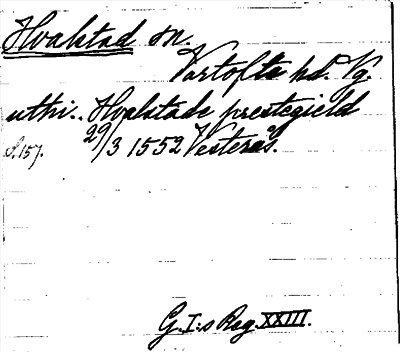 Hvalstad sn.
Vartofta hd. Vg.
uthi.. Hvalstade prestegield
S.157. 29/3 1552 Vesterås.
G.I:s Reg. XXIII.